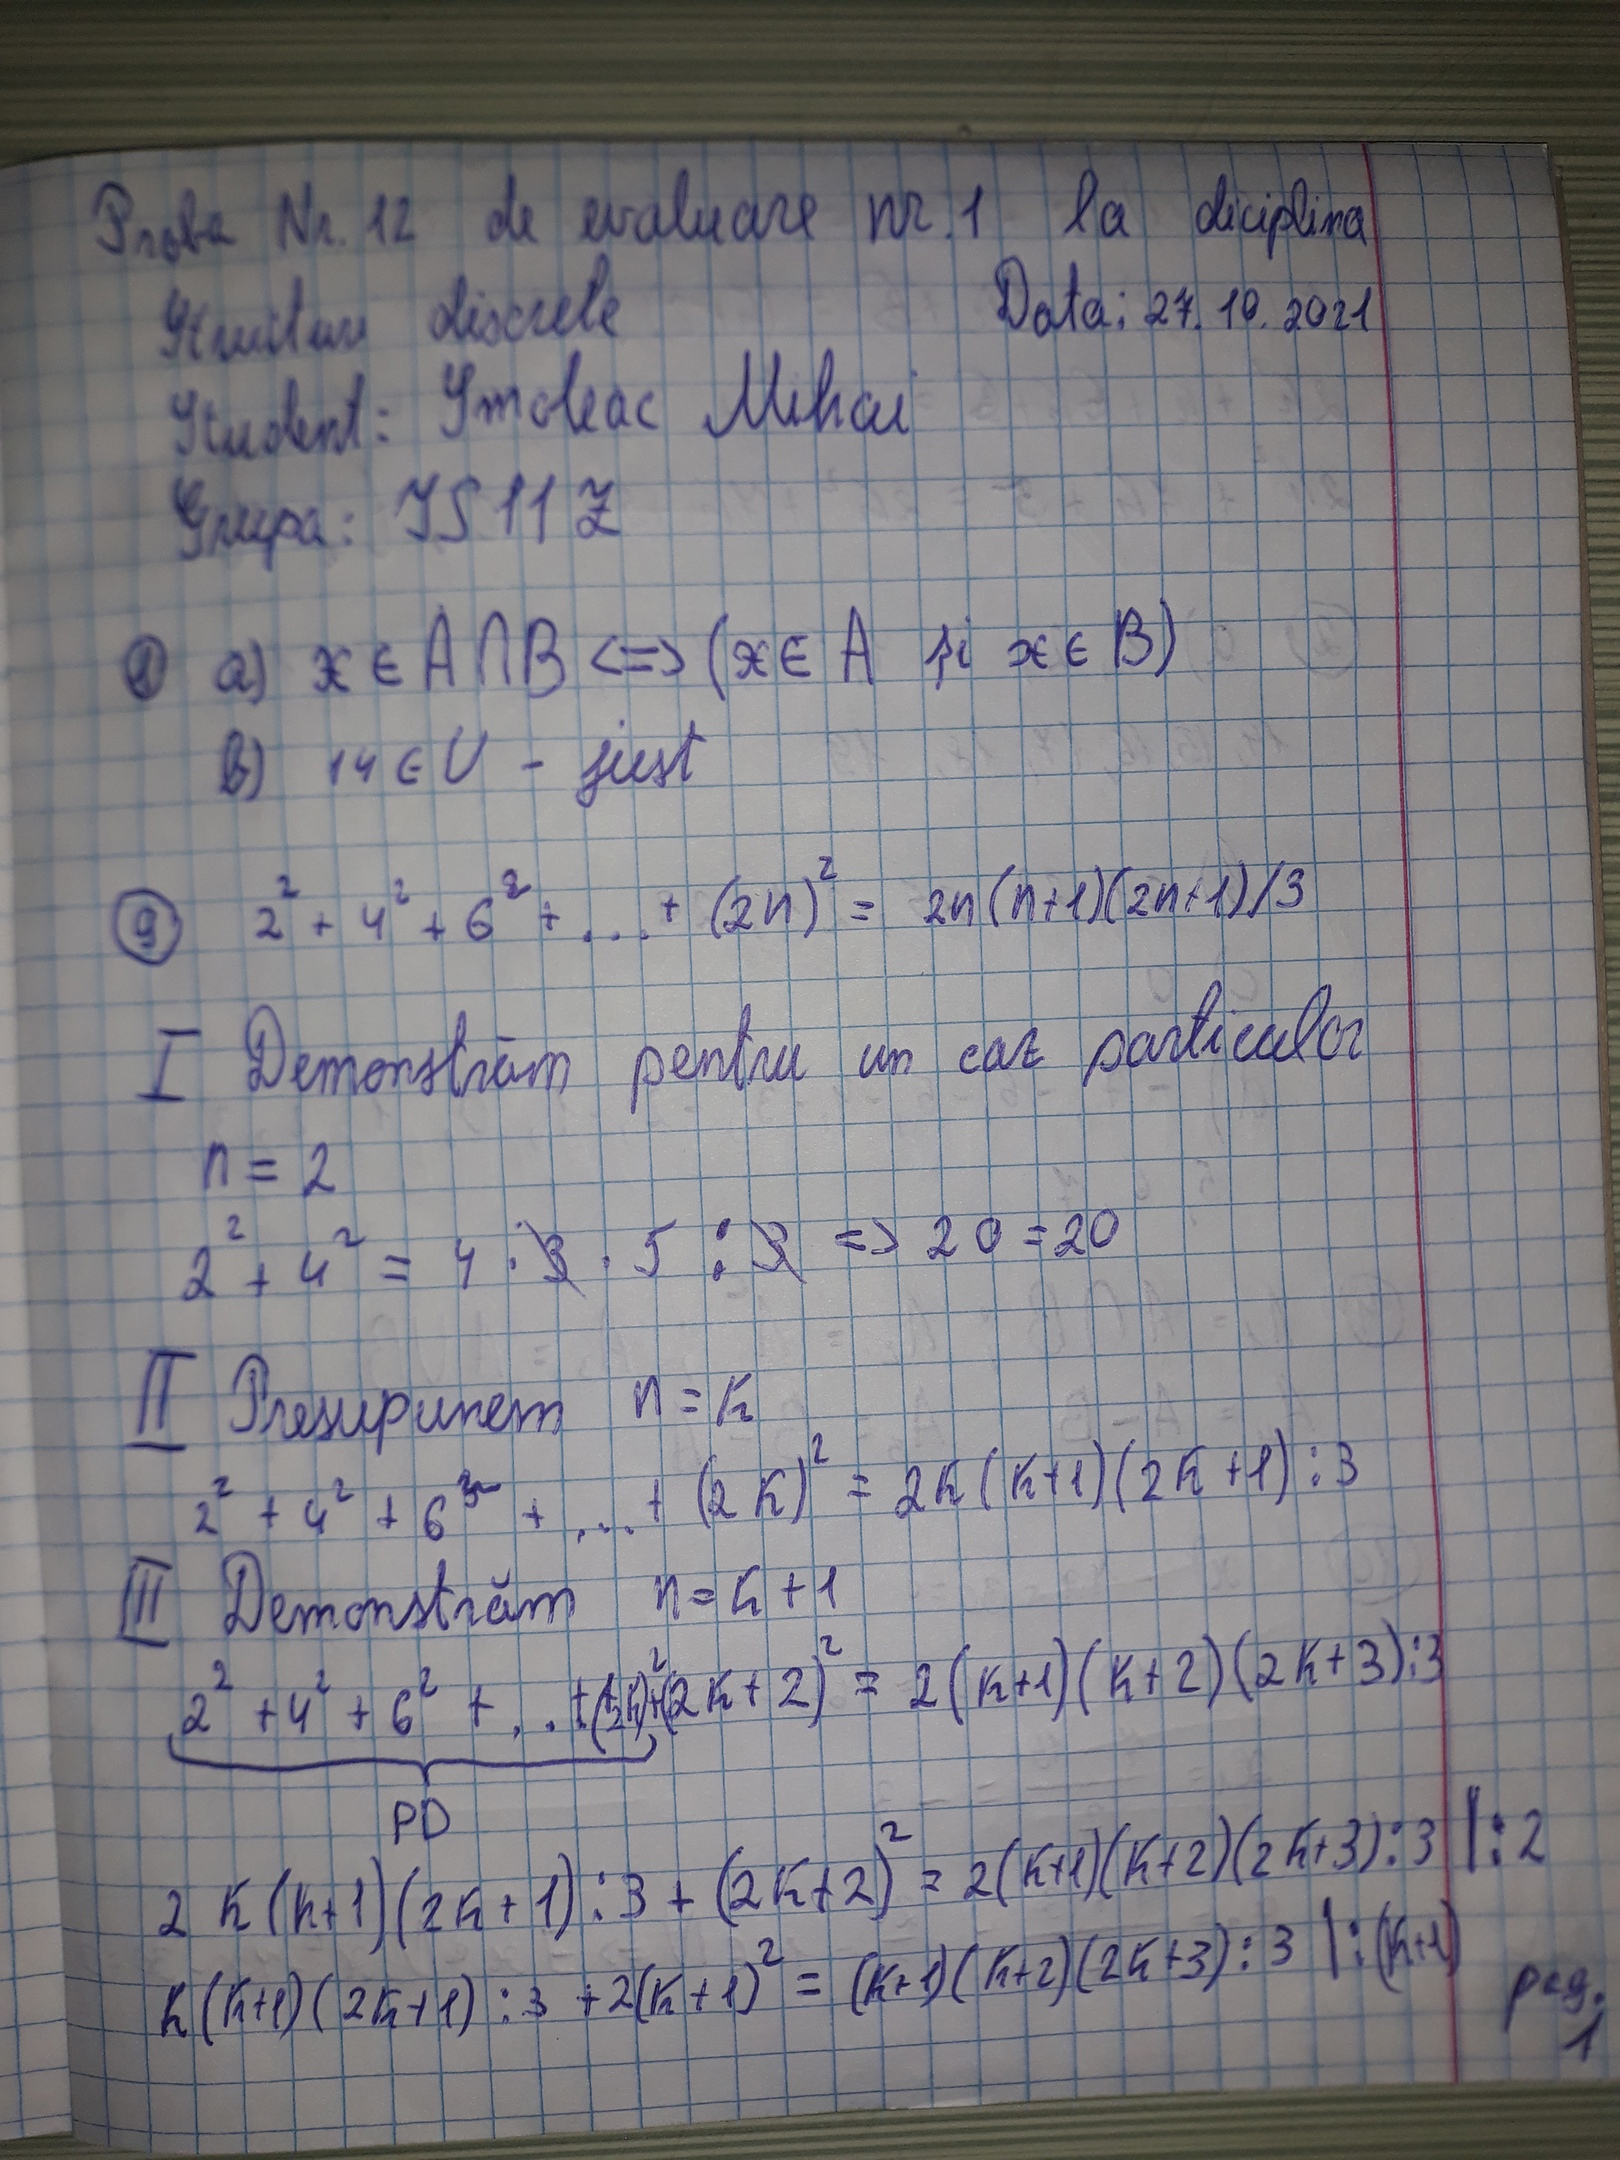 Proba Nr. 12 de evaluare nr. 1 la diciplina
Structuri discrete Data: 27.10.2021
Student: Smoleac Mihai
Grupa: IS11Z
① a) x ∈ A ∩ B <=> (x ∈ A și x ∈ B)
b) 14 ∈ U - just
⑨ 2² + 4² + 6² + ... + (2n)² = 2n(n+1)(2n+1)/3
I Demonstrăm pentru un caz particular
n = 2
2² + 4² = 4 · 3 · 5 : 3 => 20 = 20
II Presupunem n = k
2² + 4² + 6² + ... + (2k)² = 2k(k+1)(2k+1) : 3
III Demonstrăm n = k + 1
2² + 4² + 6² + ... + (2k)² + (2k+2)² = 2(k+1)(k+2)(2k+3):3
PD
2k(k+1)(2k+1) : 3 + (2k+2)² = 2(k+1)(k+2)(2k+3):3 |:2
k(k+1)(2k+1) : 3 + 2(k+1)² = (k+1)(k+2)(2k+3):3 |:(k+1)
pag. 1